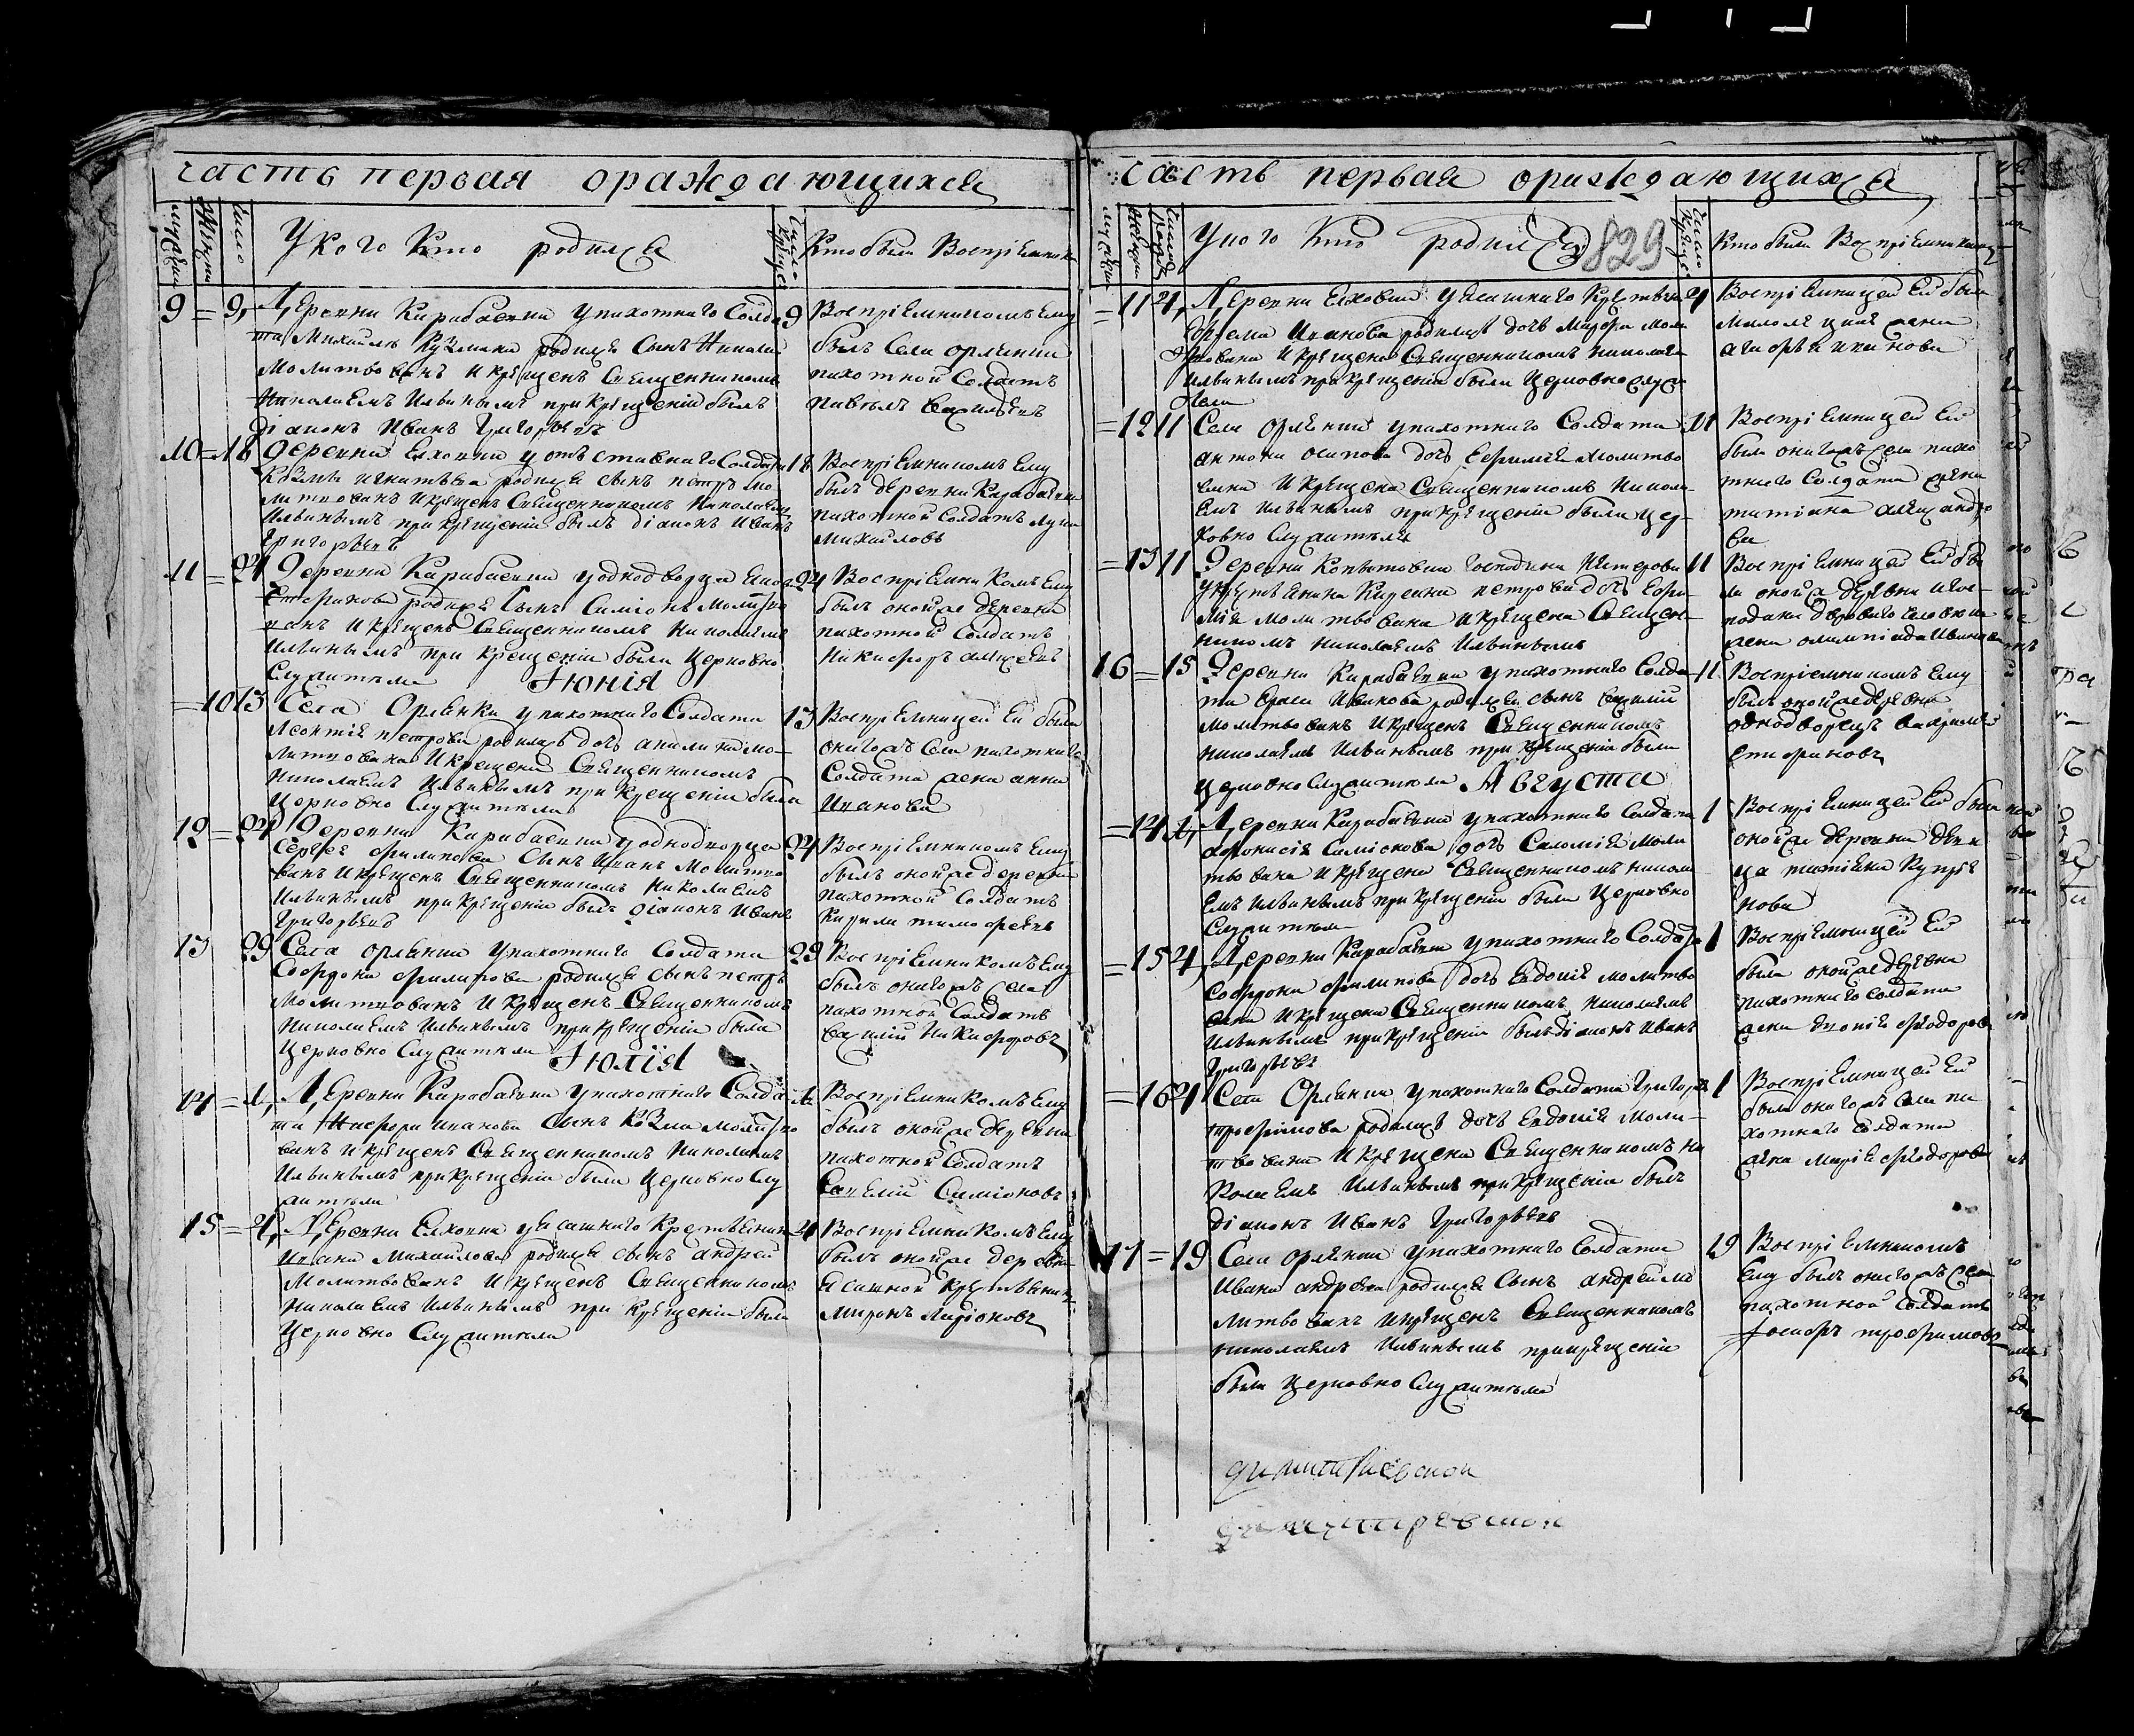 часть первая ораждающихся
Числο
У кого Кто родился
Кто был Воспріемникъ
9 = 9, Деревни Карабаевки у пахотнаго Солда
та Михайла Кузмина родился Сынъ Николай
Молитвованъ и крещенъ Священникомъ
Николаемъ Ильинымъ при крещеніи былъ
діаконъ Иванъ Григорьевъ
9 Воспріемникомъ Ему
былъ Села орлянки
пахотной Солдатъ
Павелъ Васильевъ
10 = 18 деревни Елховки у отъставнаго Солдата
Козмы игнатьева родился сынъ петръ мо
литвованъ и крещенъ Священникомъ Николаемъ
Ильинымъ при крещеніи былъ діаконъ Иванъ
Григорьевъ
18 Воспріемникомъ Ему
былъ деревни Карабаевки
пахотной Солдатъ Лука
Михайловъ
11 = 21 Деревни Карабаевки у однодворца
родился Сынъ Симіонъ молитво
ванъ и крещенъ Священникомъ Николаемъ
Ильинымъ при крещеніи были Церковно
Служители
24 Воспріемникомъ Ему
былъ оной же деревни
пахотной Солдатъ
Никифоръ алексеевъ
Іюнія
= 10 13 Села Орлянки у пахотнаго Солдата
Леонтія петрова родилась дочь акилина мо
литвована и крещена Священникомъ
Николаемъ Ильинымъ при крещеніи были
Церковно Служители
13 Воспріемницей Ей была
онагожъ Села пахотнаго
Солдата жена анна
Иванова
12 = 24 Деревни Карабаевки у однодворца
Сергея филипова Сынъ Иванъ Молитво
ванъ и крещенъ Священникомъ Николаемъ
Ильинымъ при крещеніи былъ діаконъ Иванъ
Григорьевъ
24 Воспріемникомъ Ему
былъ оной же деревни
пахотной Солдатъ
Кирила тимофеевъ
13 29 Села орлянки у пахотнаго Солдата
Софрона филипова родился сынъ петръ
Молитвованъ и крещенъ Священникомъ
Николаемъ Ильинымъ при крещеніи были
Церковно Служители
29 Воспріемникомъ Ему
былъ онагожъ Села
пахотной Солдатъ
василій Никифоровъ
Іюлія
14 = 1, Деревни Карабаевки у пахотнаго Солда
та Никифора иванова сынъ Козма молитво
ванъ и крещенъ Священникомъ Николаемъ
Ильинымъ при крещеніи были Церковно Слу
жители
1 Воспріемникомъ Ему
былъ оной же деревни
пахотной Солдатъ
Симіоновъ
15 = 4, Деревни Елховки у ясашнаго Крестьянина
Ивана Михайлова родился сынъ андрей
Молитвованъ и крещенъ Священникомъ
Николаемъ Ильинымъ при крещеніи были
Церковно Служители
4 Воспріемникомъ Ему
былъ оной же деревни
ясашной крестьянинъ
Миронъ
часть первая ораждающихся
У кого Кто родился
829
Кто были Воспріемники
= 11 4, Деревни Елховки у ясашнаго Крестьянина
Иванова родилась дочь Марфа моли
твована и крещена Священникомъ николаемъ
ильинымъ при крещеніи были Церковнослужи
тели
4 Воспріемницей Ей была
жена
агафья иванова
= 12 11 Села Орлянки у пахотнаго Солдата
антона осипова дочь Ефимія Молитво
вана и крещена Священникомъ Никола
емъ Ильинымъ при крещеніи были цер
ковно Служители
11 Воспріемницей Ей
была онагожъ Села пахо
тнаго Солдата жена
татіана александро
ва
= 13 11 Деревни Копытовки Господина
у крестьянина петрова дочь Ефи
мія молитвована и крещена Священ
никомъ николаемъ Ильинымъ
11 Воспріемницей Ей бы
ла оной же деревни и гос
подина двороваго человека
жена олимпіада Иванова
16 = 15 Деревни Карабаевки у пахотнаго Солда
та Иванова родился сынъ василій
молитвованъ и крещенъ Священникомъ
николаемъ Ильинымъ при крещеніи были
церковно Служители
11 Воспріемникомъ Ему
былъ оной же деревни
однодворецъ
Августа
= 14 1, Деревни Карабаевки у пахотнаго Солдата
афонасія Симіонова дочь Саломія Моли
твована и крещена Священникомъ никола
емъ Ильинымъ при крещеніи были Церковно
Служители
1 Воспріемницей Ей была
оной же деревни деви
ца татіана Купрія
нова
= 15 4, Деревни Карабаевки у пахотнаго Солдата
Софрона филипова дочь Евдокія молитво
вана и крещена Священникомъ Николаемъ
Ильинымъ при крещеніи былъ діаконъ Иванъ
Григорьевъ
1 Воспріемницей Ей
была оной же деревни
пахотнаго солдата
жена федорова
= 16 21 Села Орлянки у пахотнаго Солдата Григорья
трофимова родилась дочь Евдокія Моли
твована и крещена Священникомъ Ни
колаемъ Ильинымъ при крещеніи былъ
діаконъ Иванъ Григорьевъ
1 Воспріемницей Ей
была онагожъ Села па
хотнаго Солдата
жена Марія федорова
17 = 19 Села орлянки у пахотнаго Солдата
Ивана андреева родился Сынъ андрей мо
литвованъ и крещенъ Священникомъ
николаемъ Ильинымъ при крещеніи
были церковно Служители
19 Воспріемникомъ
Ему былъ онагожъ Села
пахотной солдатъ
Іосифъ трофимовъ